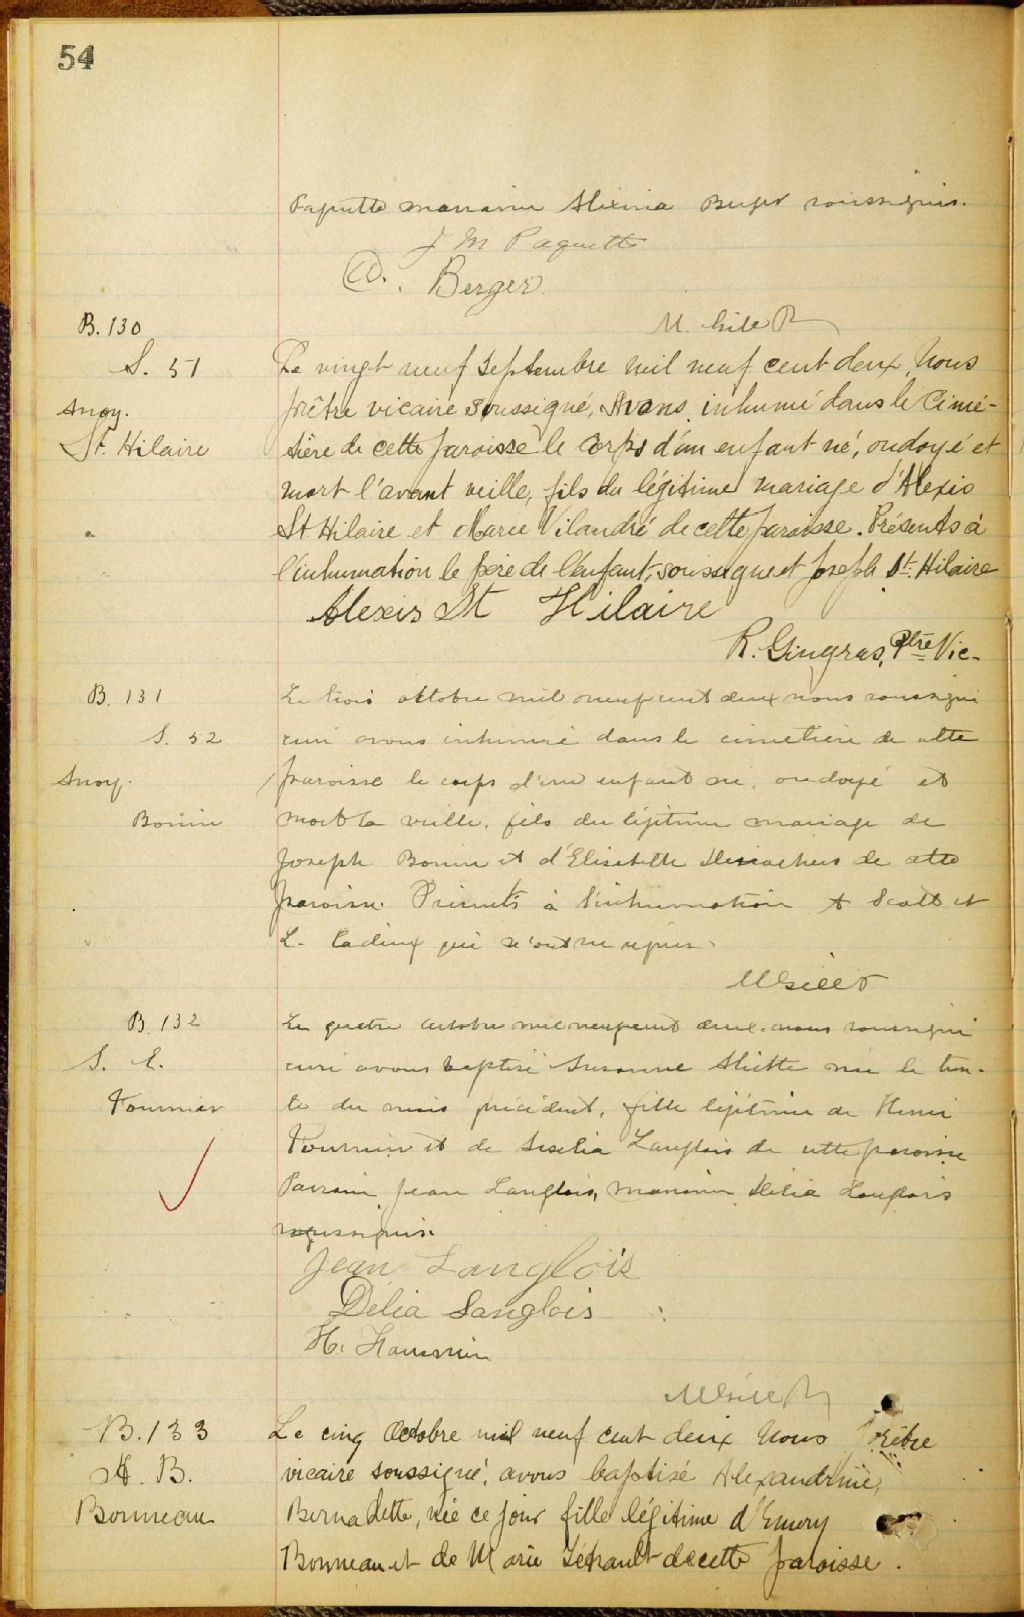 54
Paquette marraine Alexina Berger soussignés.
J M Paquette
A. Berger
B. 130
S. 51
Anoy.
St. Hilaire
Le vingt neuf Septembre mil neuf cent deux, Nous
prêtre vicaire soussigné, Avons inhumé dans le Cime-
tière de cette paroisse le corps d'un enfant né, ondoyé et
mort l'avant veille, fils du légitime mariage d'Alexis
St Hilaire et Marie Vilandré de cette paroisse. Présents à
l'inhumation le père de l'enfant, soussigné et Joseph St. Hilaire
Alexis St Hilaire
R. Gingras, Ptre Vic.
B. 131
S. 52
Anoy.
Bonin
Le trois octobre mil neuf cent deux nous soussigné
curé avons inhumé dans le cimetière de cette
paroisse le corps d'un enfant né, ondoyé et
mort la veille, fils du légitime mariage de
Joseph Bonin et d'Elisabeth de cette
paroisse. Présents à l'inhumation A Scott et
L. qui n'ont su signer.
B. 132
S. E.
Fournier
Le quatre octobre mil neuf cent deux nous soussigné
curé avons baptisé Susanne née le tren-
te du mois précédent, fille légitime de Henri
Fournier et de Langlois de cette paroisse
Parrain Jean Langlois, marraine Délia Langlois
soussignés.
Jean Langlois
Délia Langlois
H. Fournier
B. 133
A. B.
Bonneau
Le cinq Octobre mil neuf cent deux Nous prêtre
vicaire soussigné, avons baptisé Alexandrine,
Bernadette, née ce jour fille légitime d'Emery
Bonneau et de Marie de cette paroisse.